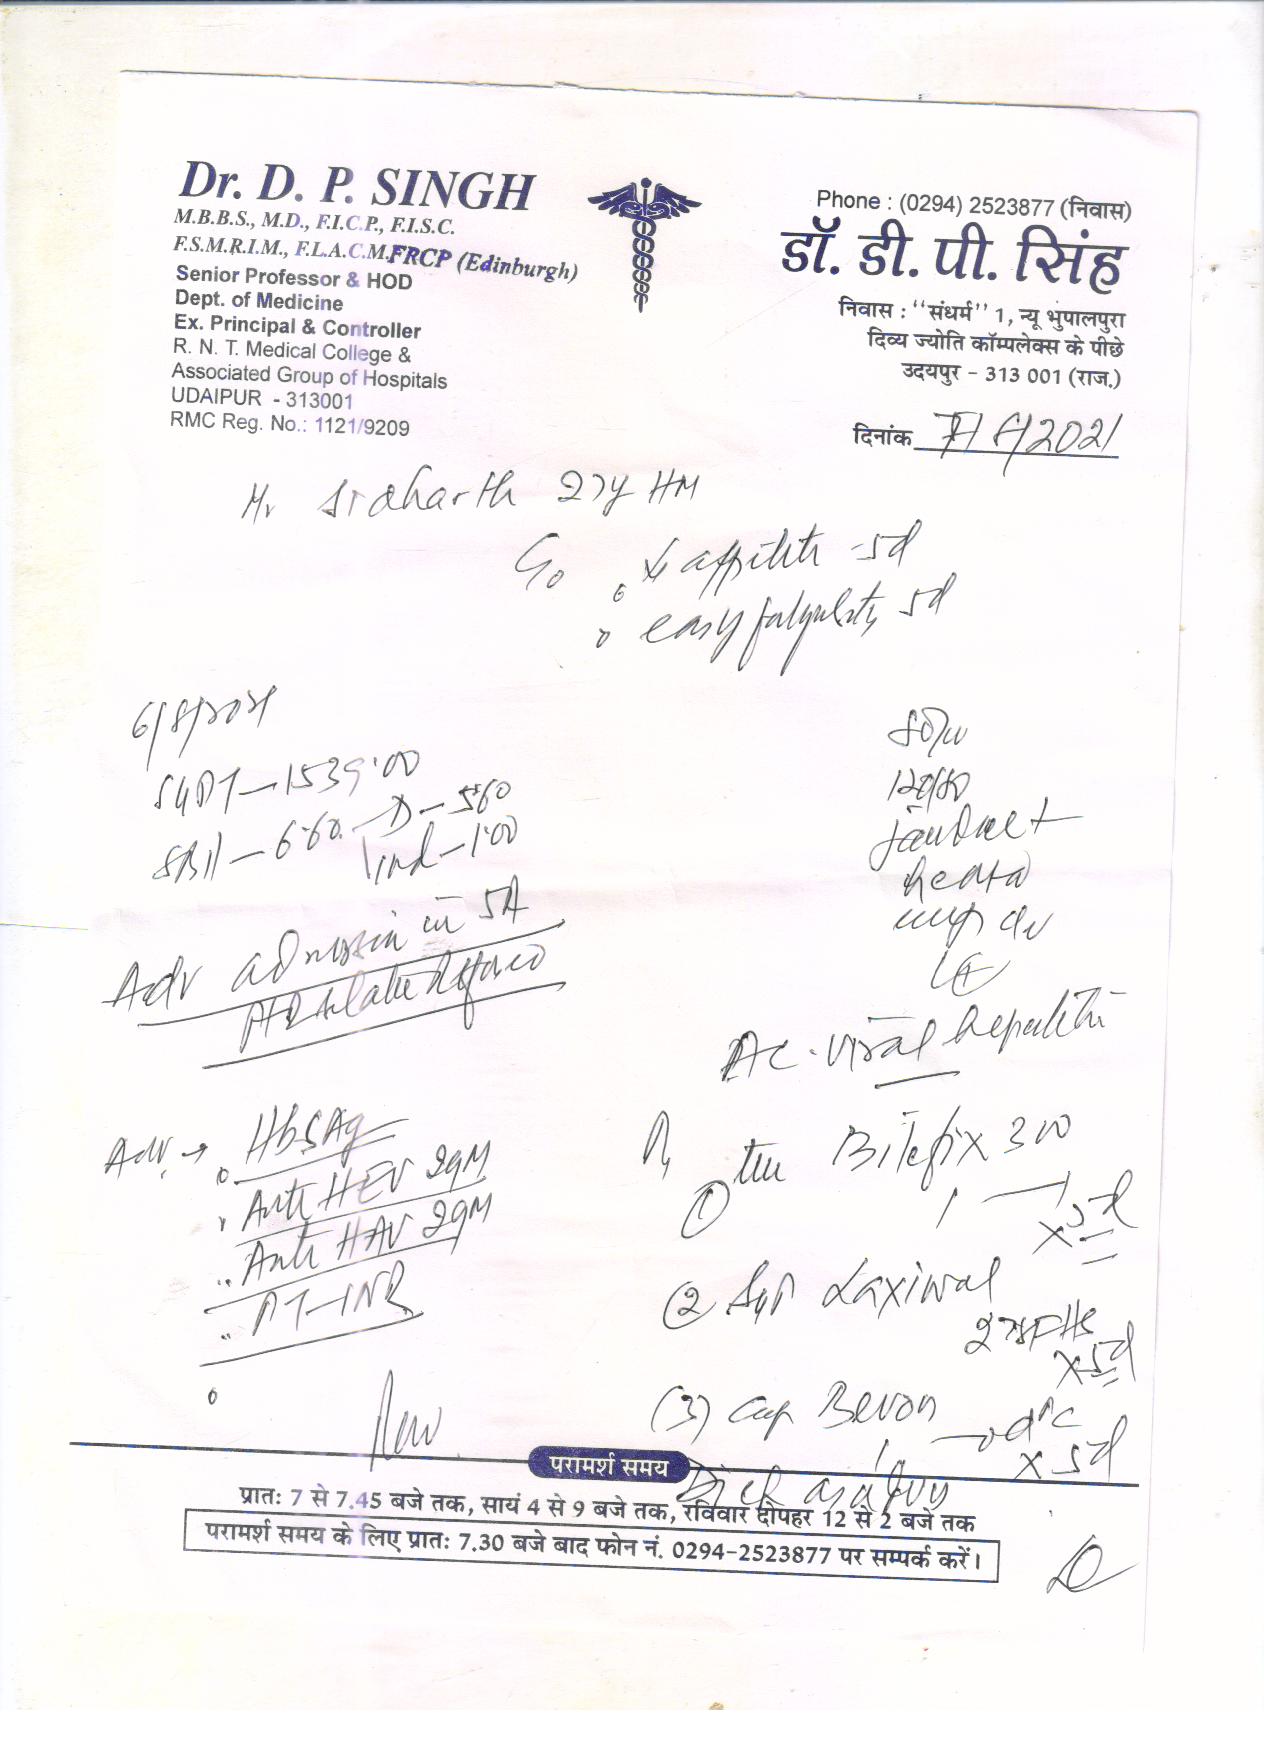 Dr. D. P. SINGH
M.B.B.S., M.D., F.I.C.P., F.I.S.C.
F.S.M.R.I.M., F.L.A.C.M.FRCP (Edinburgh)
Senior Professor & HOD
Dept. of Medicine
Ex. Principal & Controller
R. N. T. Medical College &
Associated Group of Hospitals
UDAIPUR - 313001
RMC Reg. No.: 1121/9209
Phone : (0294) 2523877 (निवास)
डॉ. डी. पी. सिंह
निवास : "संधर्म" 1, न्यू भुपालपुरा
दिव्य ज्योति कॉम्पलेक्स के पीछे
उदयपुर - 313 001 (राज.)
दिनांक 7/8/2021
Mr Sidharth 27y HM
C/o appitite 5d
easy 5d
6/8/2021
SGPT - 1539.00
SBil - 6.60 D - 5.60
Ind - 1.00
Adv admission in
80/
120/80
Jaundice +
Ac. viral hepatitis
Adv. → HbSAg
Anti HEV IgM
Anti HAV IgM
PT-INR
① Bilefix 300
1 — 1
x 5d
② Syp Laxiwal
HS
x 5d
(3) Cap Bevon
x 5d
परामर्श समय
प्रातः 7 से 7.45 बजे तक, सायं 4 से 9 बजे तक, रविवार दोपहर 12 से 2 बजे तक
परामर्श समय के लिए प्रातः 7.30 बजे बाद फोन नं. 0294-2523877 पर सम्पर्क करें।